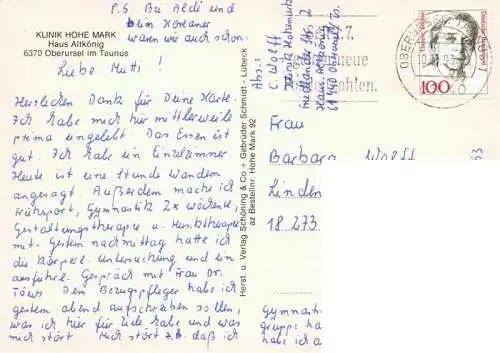 P.S Bei Aldi und
beim Hortaner
waren wir auch schon.
KLINIK HOHE MARK
Haus Altkönig
6370 Oberursel im Taunus
Liebe Mutti!
Herzlichen Dank für Deine Karte.
Ich habe mich hier mittlerweile
prima eingelebt. Das Essen ist
gut. Ich habe ein Einzelzimmer
Heute ist eine Stunde Wandern
angesagt. Außerdem mache ich
Frühsport, Gymnastik 2x wöchentl,
Gestaltungstherapie u Musiktherapie
mit. Gestern nachmittag hatte ich
die körperl. Untersuchung und ein
ausführl. Gespräch mit Frau Dr.
Töws Dem Bezugspfleger habe ich
gestern abend aufschreiben sollen,
was ich hier für Ziele habe und was
mich stört Mich stört z.B. daß ich
Herst. u. Verlag Schöning & Co + Gebrüder Schmidt · Lübeck
az Bestellnr. Hohe Mark 92
Abs.:
C. Wolff
Klinik Hohemark
Friedländerstr. 2
Haus Altkönig
61440 Oberursel Ts.
7.
neue
zahlen.
OBERURSEL
100
Frau
Barbara Wolff
Linden
18 273
63
Gymnasti
gruppe ha
habe ich h